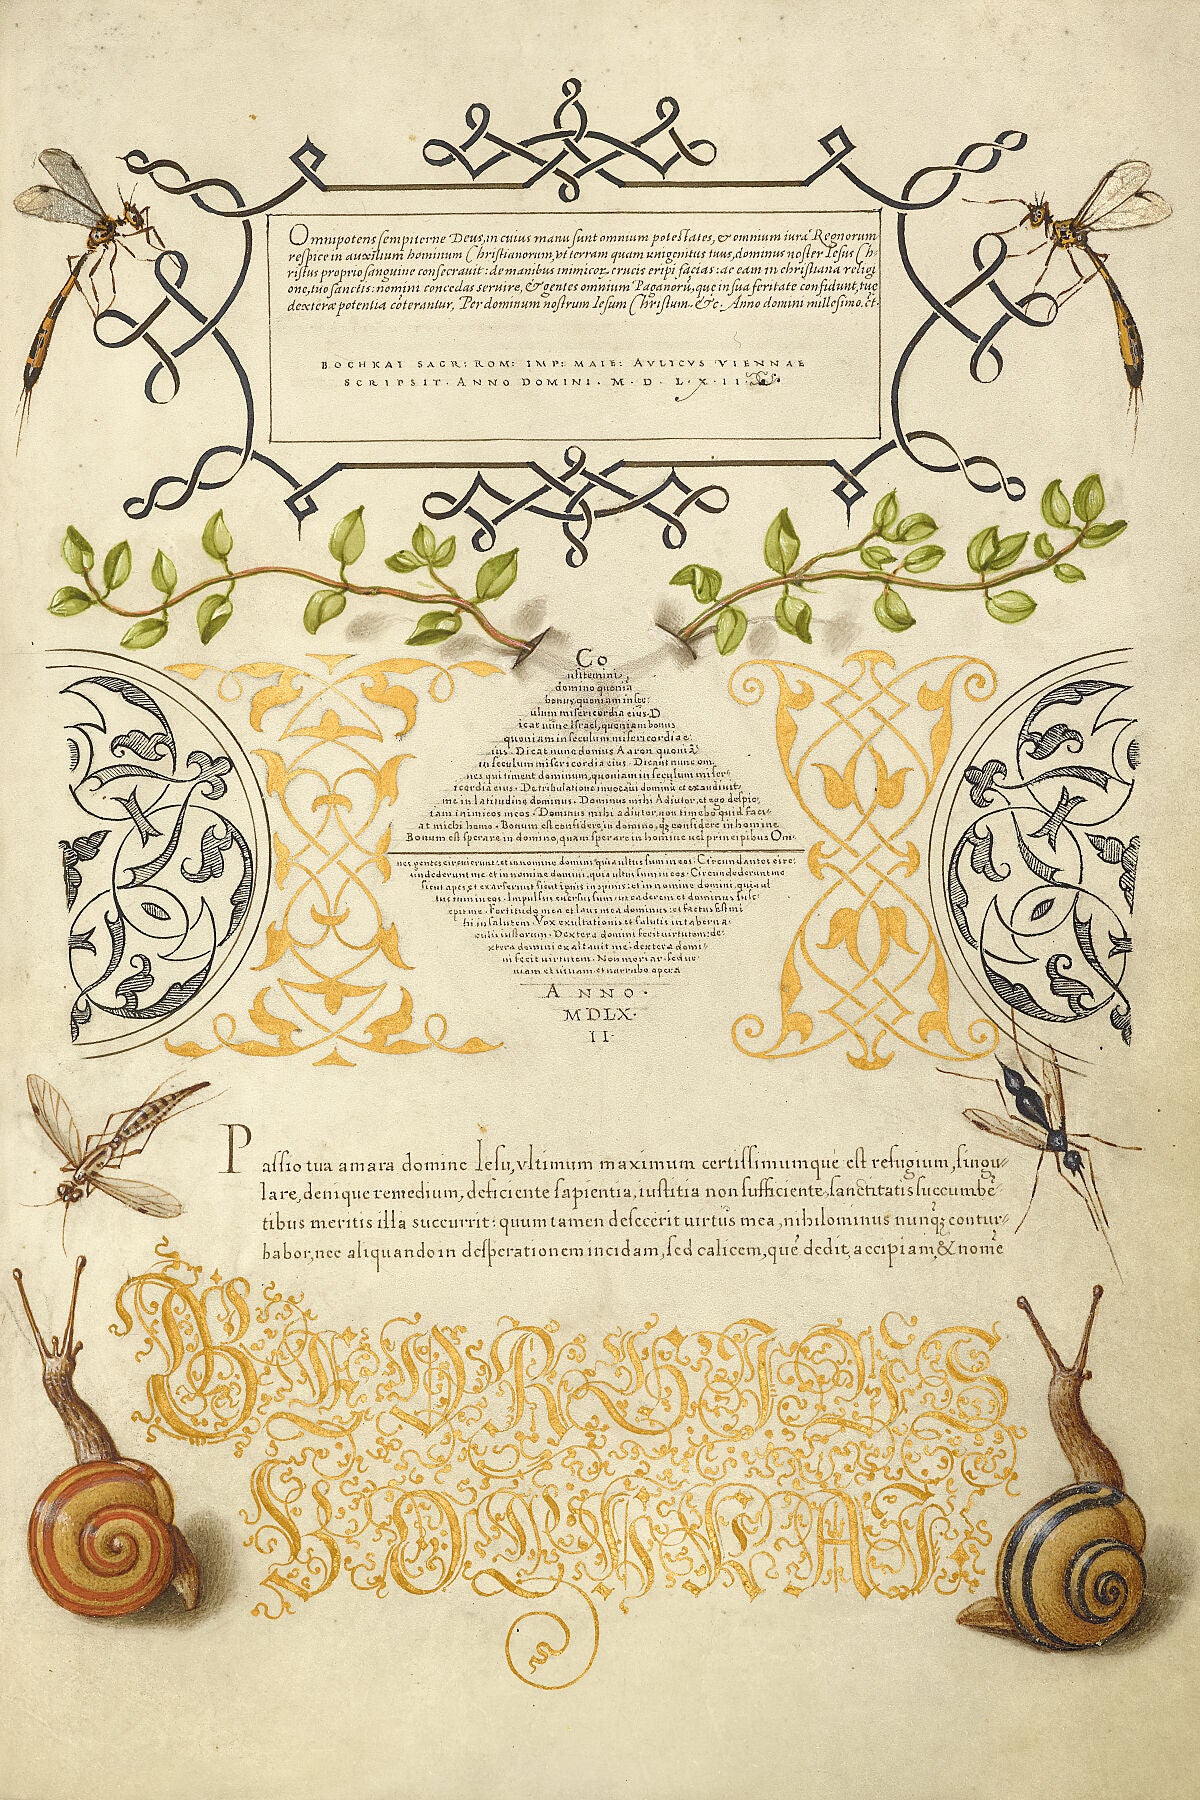 Omnipotens sempiterne Deus, in cuius manu sunt omnium potestates, & omnium iura Regnorum
respice in auxilium hominum Christianorum, vt terram quam unigenitus tuus, dominus noster Iesus Ch-
ristus proprio sanguine consecrauit: de manibus inimicor. crucis eripi facias: ac eam in christiana religi
one, tuo sanctis: nomini concedas seruire, & gentes omnium Paganorū, que in sua feritate confidunt, tuę
dexteræ potentia cōterantur, Per dominum nostrum Iesum Christum. &c. Anno domini millesimo. &t.
BOCHKAI SACR: ROM: IMP: MAIE: AVLICVS VIENNAE
SCRIPSIT. ANNO DOMINI. M. D. L. X. II
Co
nfitemini
domino quoniā
bonus, quoniam in sec:
ulum misericordia eius. D
icat nunc Israel, quoniam bonus
quoniam in seculum misericordia e:
ius. Dicat nunc domus Aaron quoniā
in seculum misericordia eius. Dicant nunc om
nes qui timent dominum, quoniam in seculum miser-
icordia eius. De tribulatione inuocaui dominū et exaudiuit
me in latitudine dominus. Dominus mihi Adiutor, et ego despic
iam inimicos meos. Dominus mihi adiutor, non timebo quid faci-
at michi homo. Bonum est confidere in domino, quā confidere in homine
Bonum est sperare in domino, quam sperare in homine uel principibus Om-
nes gentes circuierunt: et in nomine domini, quia ultus sum in eos. Circundantes circ:
undederunt me et in nomine domini, quia ultus sum in eos. Circundederunt me
sicut apes, et exarserunt sicut ignis in spinis: et in nomine domini, quia ul
tus sum in eos. Impulsus euersus sum: ut caderem et dominus susc
epit me. Fortitudo mea et laus mea dominus: et factus est mi
hi in salutem. Vox exultationis et salutis in taberna
culis iustorum. Dextera domini fecit uirtutem: de-
xtera domini exaltauit me: dextera domi-
ni fecit uirtutem. Non moriar sed uc
uiam et uiuam. et narrabo opera
ANNO.
MDLX.
II.
Passio tua amara domine Iesu, vltimum maximum certissimumque est refugium, singu-
lare, denique remedium, deficiente sapientia, iustitia non sufficiente, sanctitatis succumbē-
tibus meritis illa succurrit: quum tamen defecerit uirtus mea, nihilominus nunq; contur-
babor, nec aliquando in desperationem incidam, sed calicem, que dedit, accipiam, & nomē
GEORGIVS
BOCHKAI